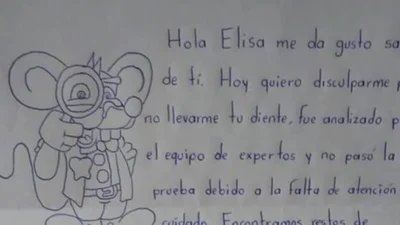 Hola Elisa me da gusto
de ti. Hoy quiero disculparme
no llevarme tu diente, fue analizado
el equipo de expertos y no pasó la
prueba debido a la falta de atención
cuidado. Encontramos restos de